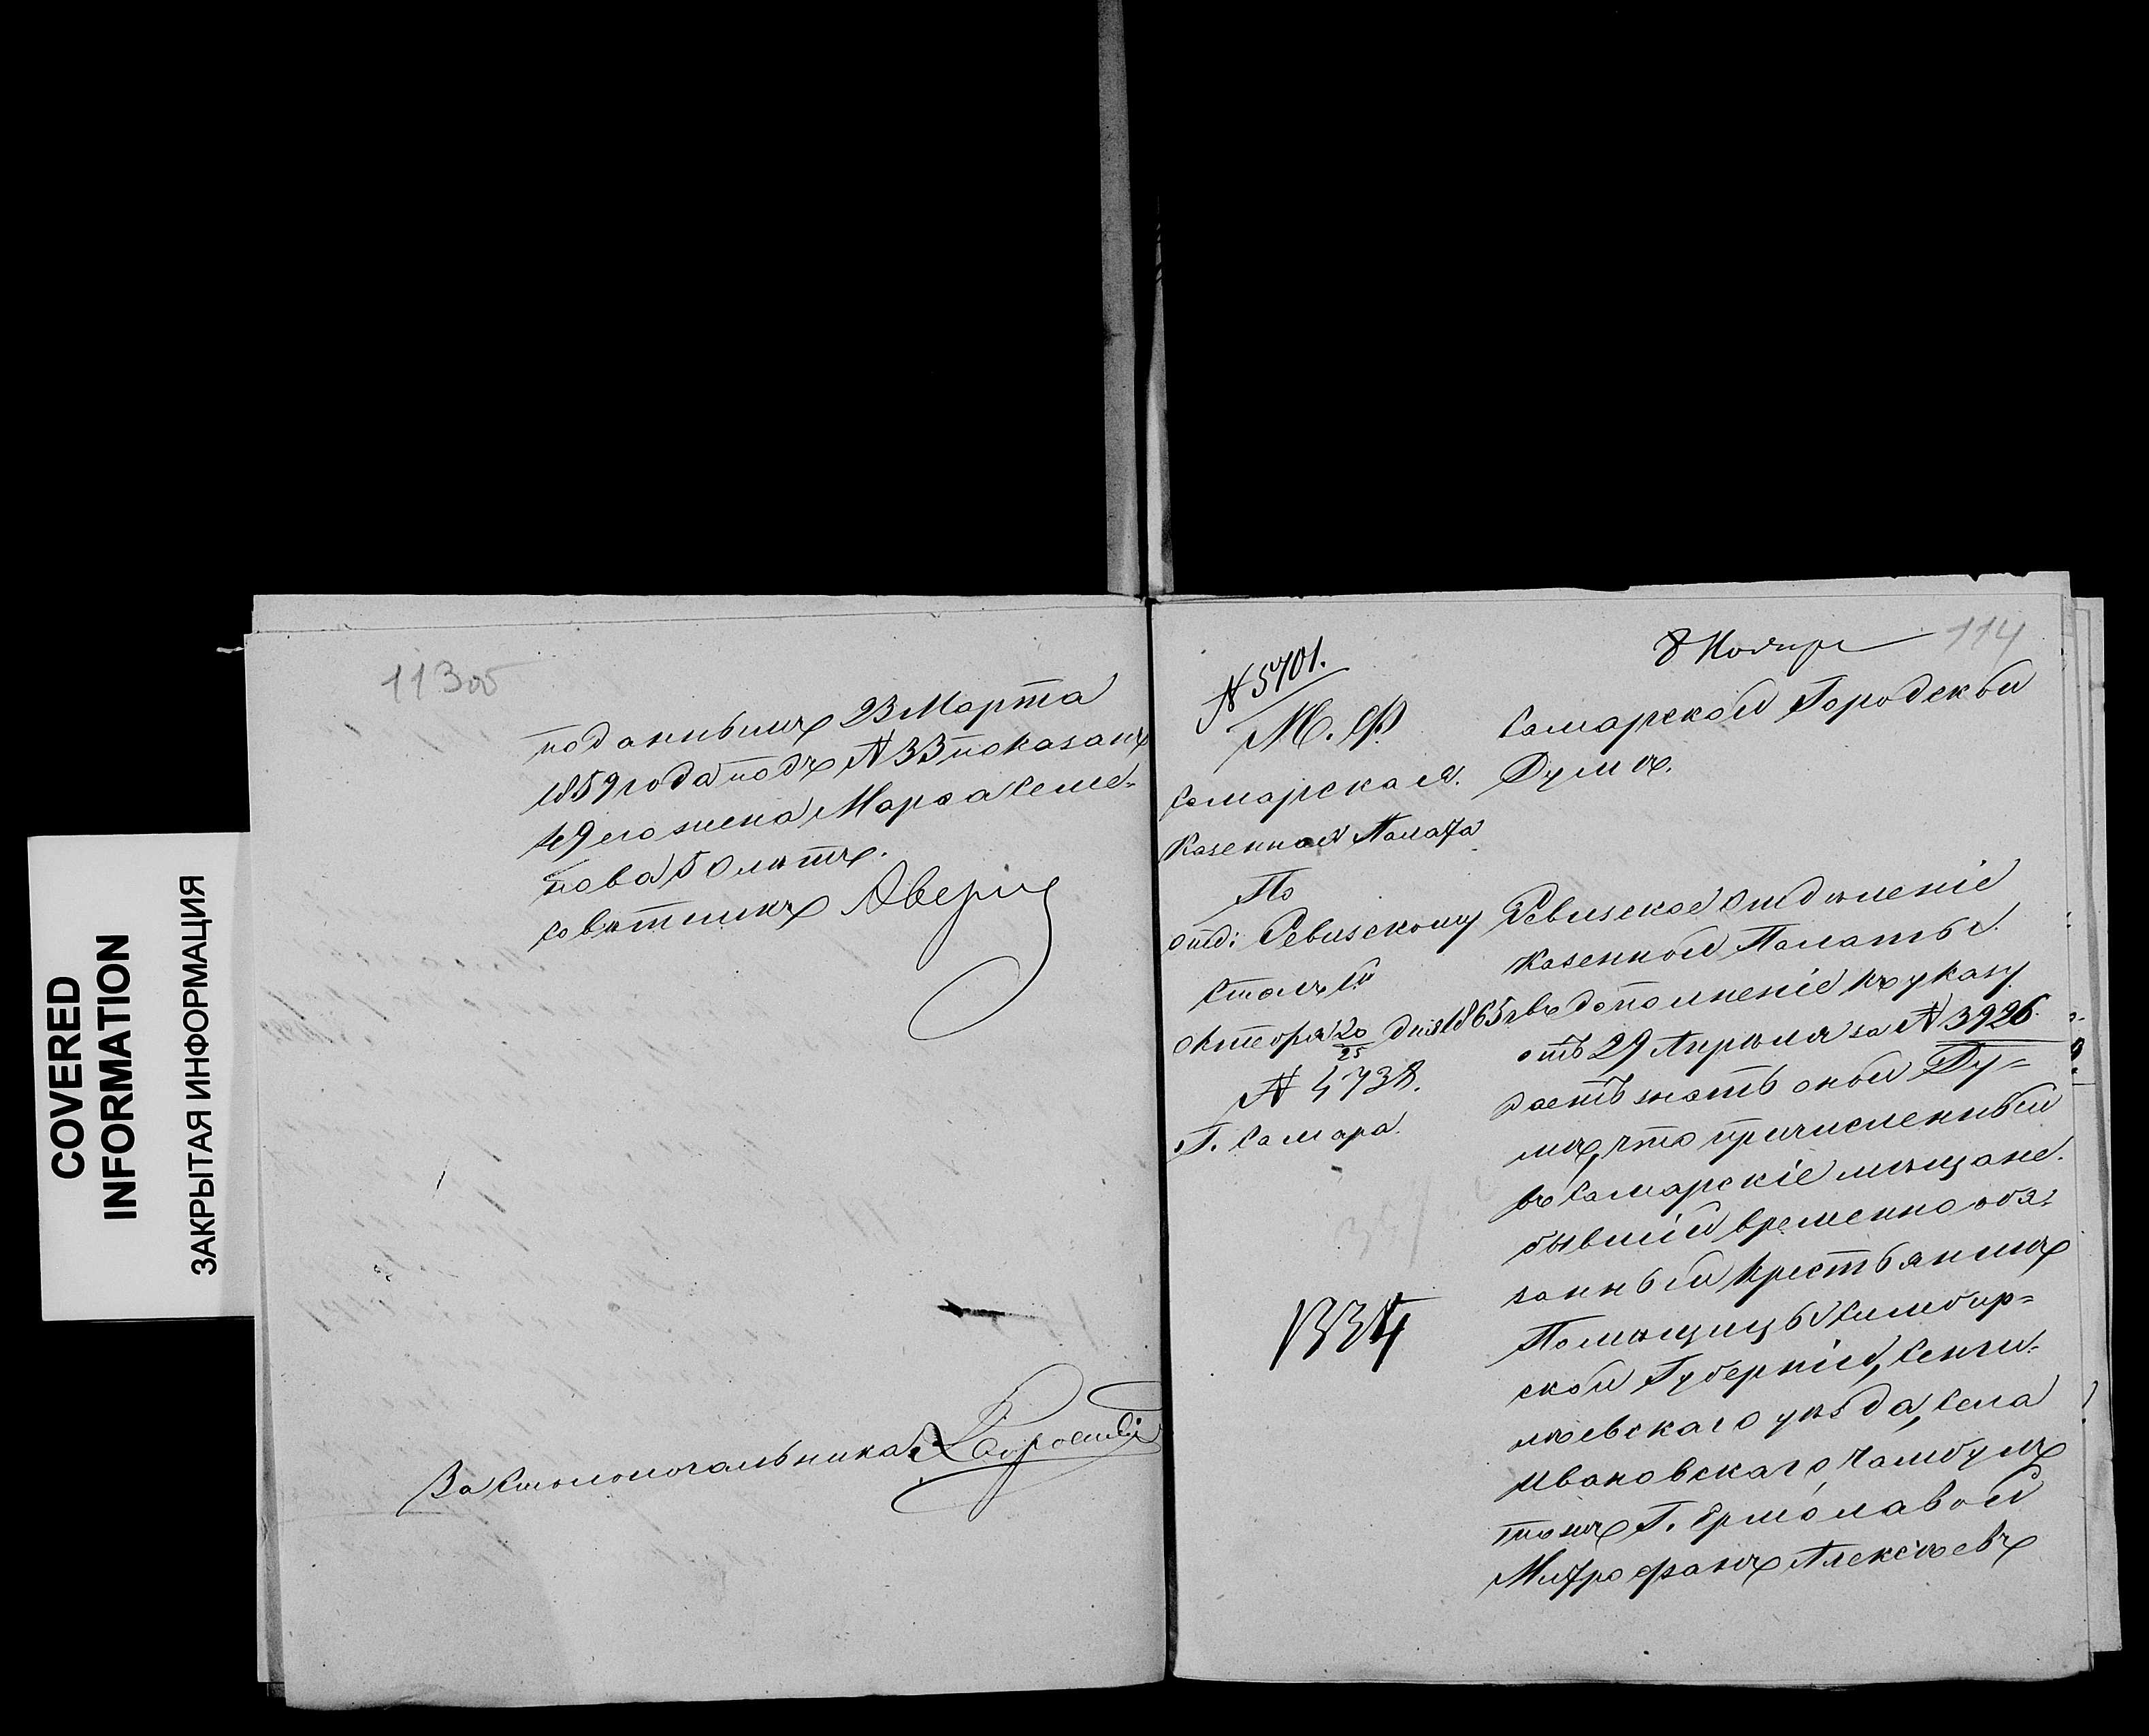 COVERED
INFORMATION
ЗАКРЫТАЯ ИНФОРМАЦИЯ
113об
поданныхъ 23 Марта
1859 года подъ № 33 показанъ
49 его жена Марѳа Семе-
нова 50 лѣтъ.
Совѣтникъ
За Столоначальника
8 Ноября
114
№ 5701.
М. Ф.
Самарская
Казенная Палата
По
отд: Ревизскому
Столъ
Октября 20/25 дня 1865 г
№ 4738.
Г. Самара.
1334
Самарской Городской
Думѣ.
Ревизское Отдѣленіе
Казенной Палаты
въ дополненіе къ указу
отъ 29 Апрѣля за № 3926
даетъ знать оной Ду-
мѣ, что причисленный
въ Самарскіе мѣщане
бывшій временно обя-
занный крестьянинъ
Помѣщицы Симбир-
ской Губерніи, Сенги-
лѣевскаго уѣзда, Села
Ивановскаго,
тожъ Г. Ермолавой
Митрофанъ Алексѣевъ